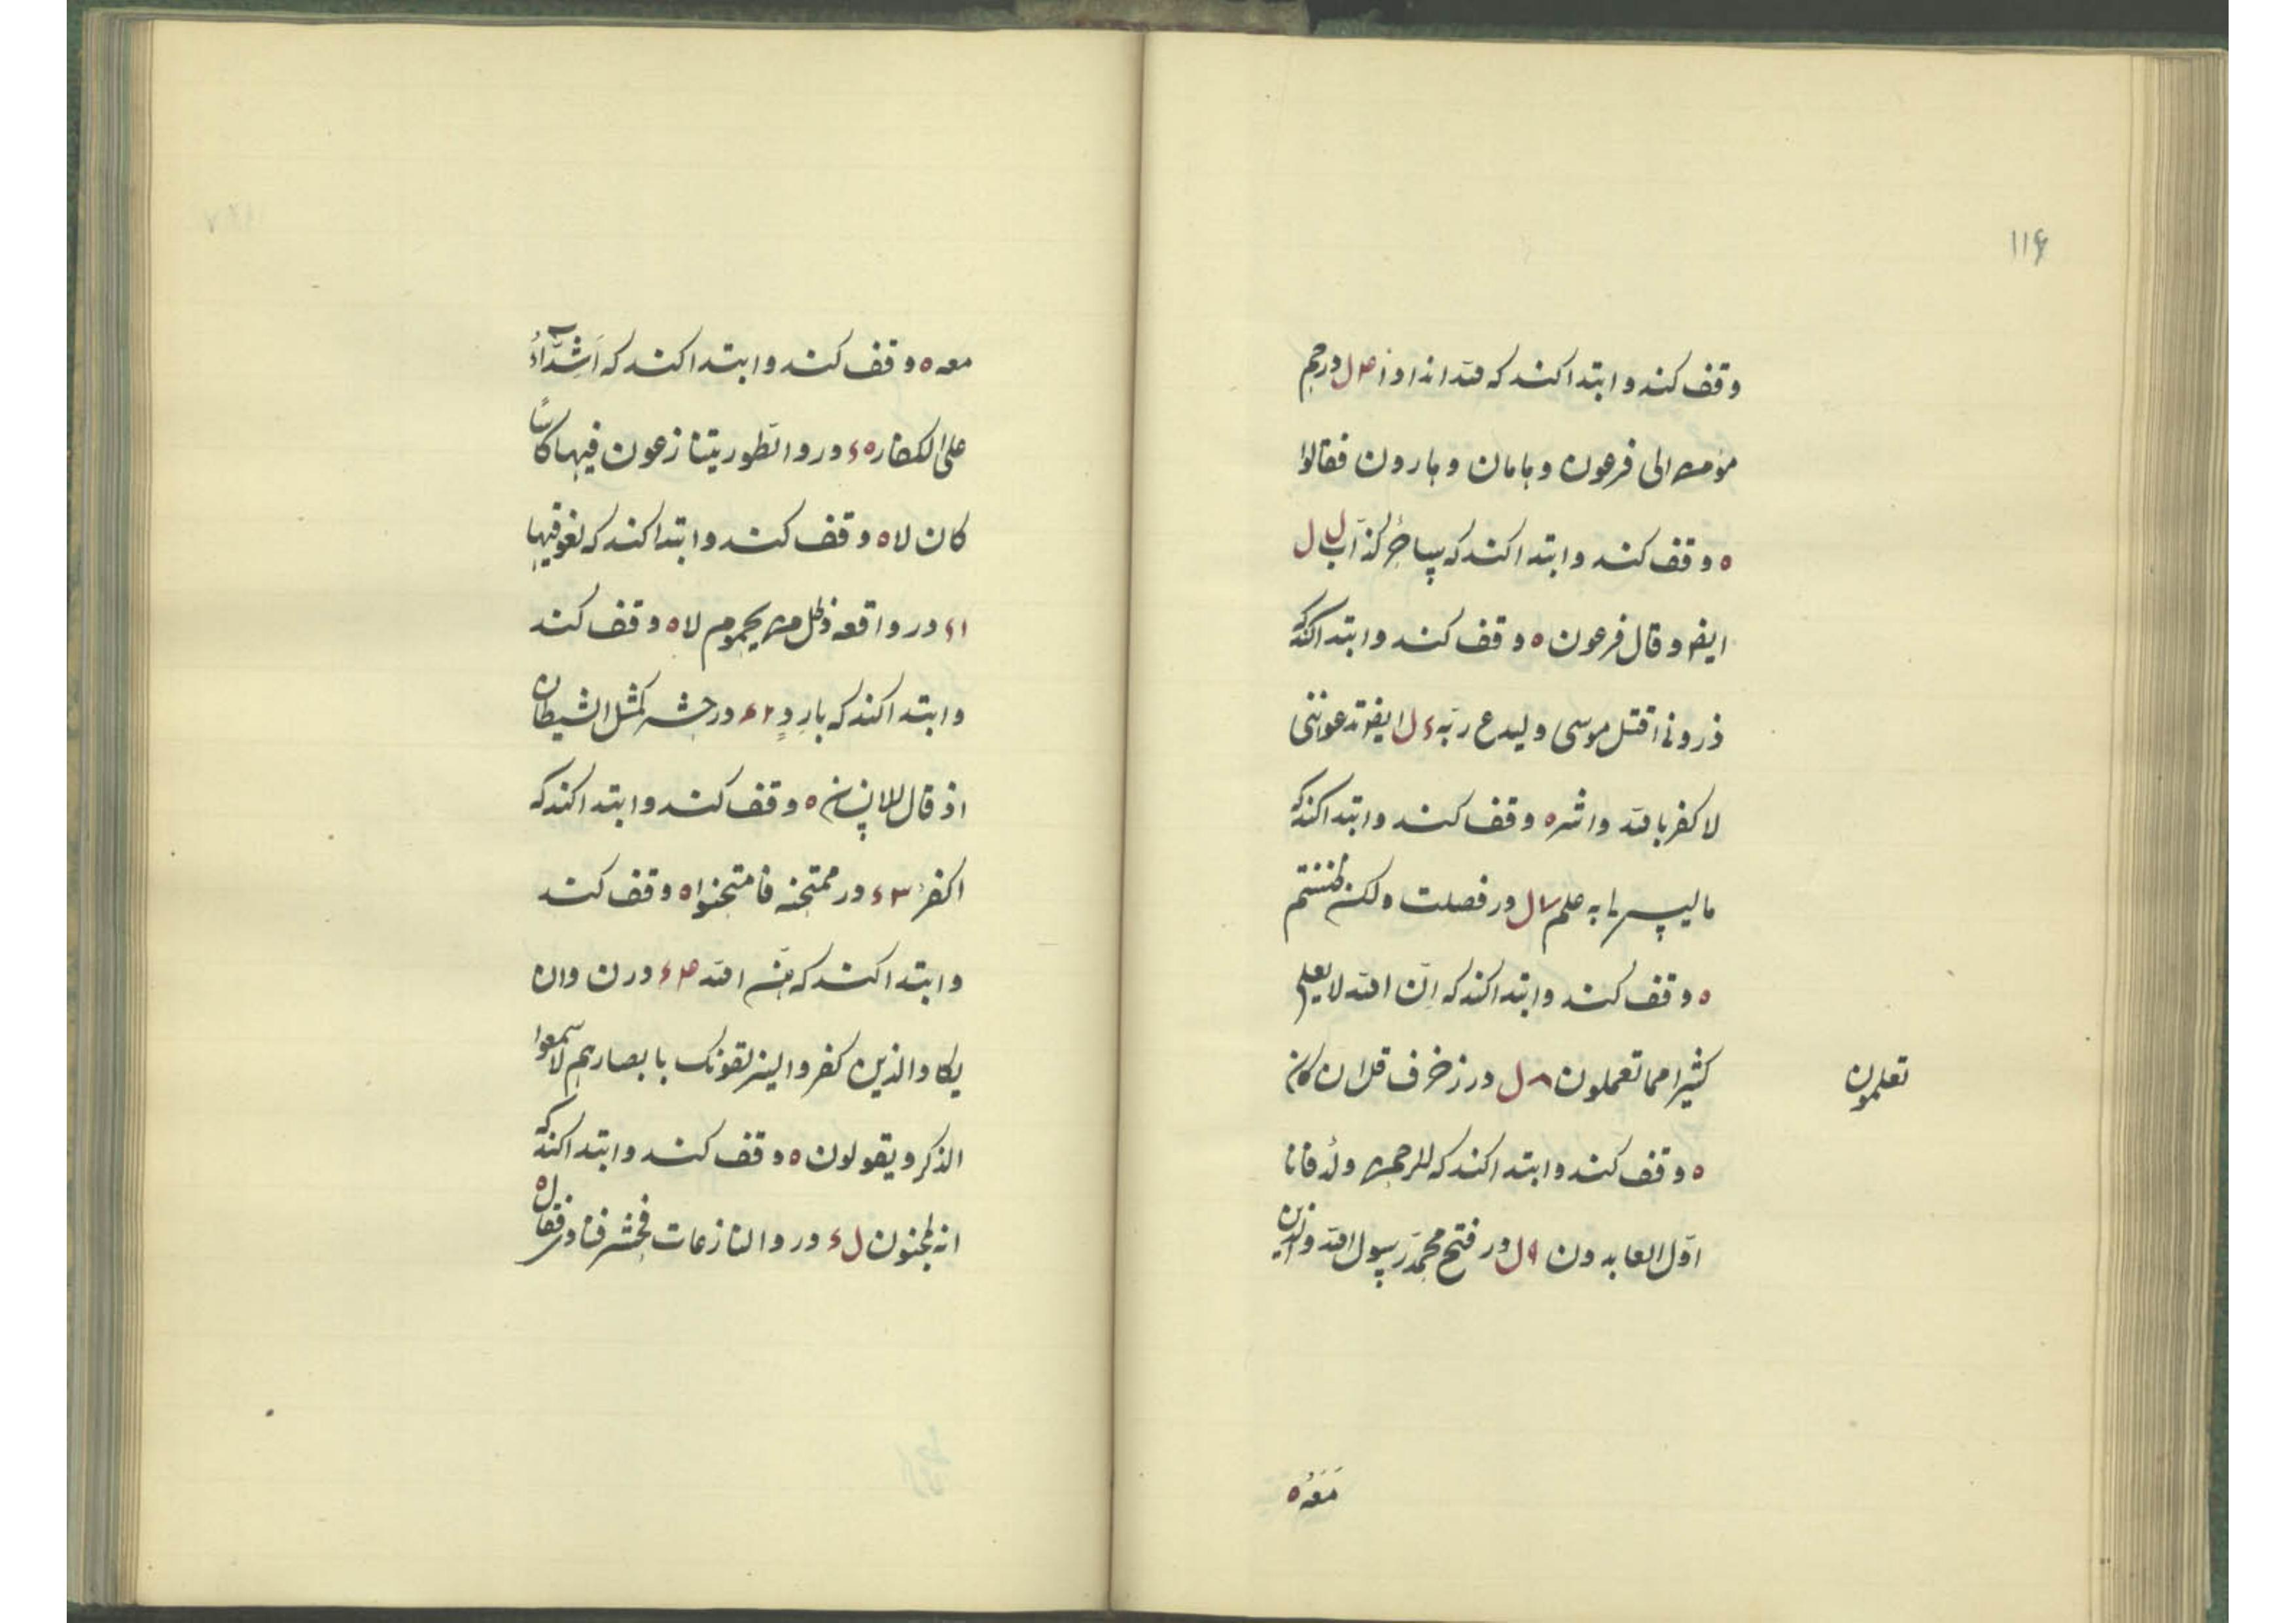 ۱۱۶
وقف کند و ابتدا کند که لله اندادا ۴ل در حم
مؤمن الی فرعون و هامان و هارون فقالوا
ه وقف کند و ابتدا کند که ساحرٌ کذاب ل ل
ایضو قال فرعون ه وقف کند و ابتدا کند که
ذرونی اقتل موسی ولیدع ربّه ء ل ایضو تدعوننی
لا کفر بالله و اشر ه وقف کند و ابتدا کند که
ما لیس لی به علم ۷ ل در فصلت ولکن ظننتم
ه وقف کند و ابتدا کند که انّ الله لا یعلم
کثیرا مما تعملون ۸ ل در زخرف قل ان کان
تعلمون
ه وقف کند و ابتدا کند که للرحمن ولدٌ فانا
اوّل العابدون ۹ل در فتح محمّد رسول الله والذین
مَعَهُ ه
معه ه وقف کند و ابتدا کند که اَشِدّآءُ
علی الکفار ه ء در والطّور یتنازعون فیها کاسًا
کان لا ه وقف کند و ابتدا کند که لغو فیها
۱ء در واقعه وظل من یحموم لا ه وقف کند
و ابتدا کند که باردٍ ۲ء در حشر کمثل الشیطان
اذ قال للانسان ه وقف کند و ابتدا کند که
اکفر ۳ء در ممتحنه فامتحنوا ه وقف کند
و ابتدا کند که هنّ الله ۴ء در ن وان
یکاد الذین کفروا لیزلقونک بابصارهم لمّا سمعوا
الذکر و یقولون ه وقف کند و ابتدا کند که
انه لمجنون ل ء در والنازعات فحشر فنادی فقال ه